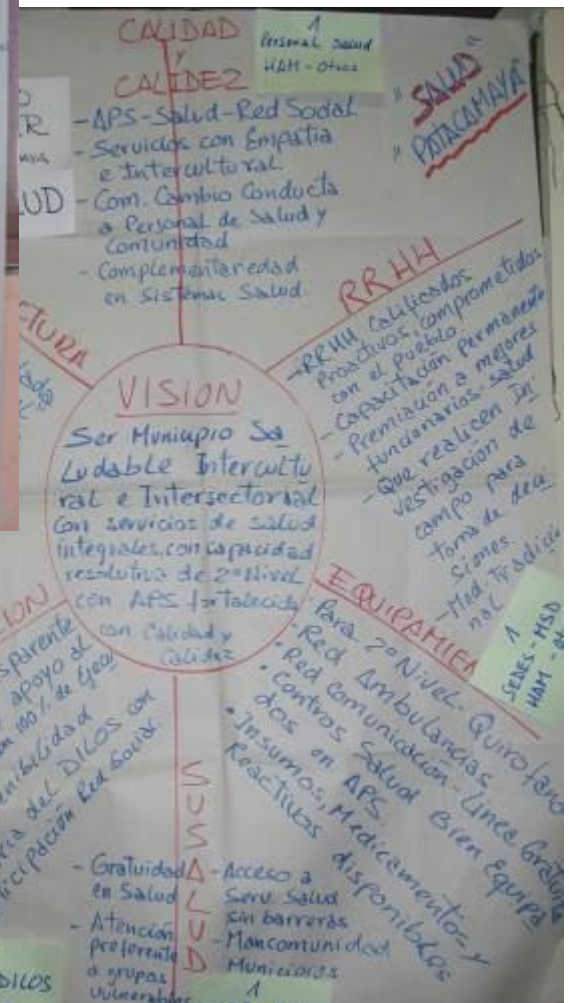 CALIDAD
Y
CALIDEZ
- APS-Salud-Red Social
- Servicios con Empatia
e Intercultural
- Com. Cambio Conducta
a Personal de Salud y
Comunidad
- Complementaredad
en Sistemas Salud.
1
Personal Salud
HAM - Otros
"SALUD"
"PATACAMAYA"
R
UD
TURA
RRHH
- RRHH Calificados
Proactivos, comprometidos
con el pueblo.
- Capacitación Permanente
- Premiación a mejores
funcionarios-salud
- Que realicen In
vestigación de
campo para
toma de deci
siones
- Med. Tradicio
nal
VISION
Ser Municipio Sa
ludable Intercultu
ral e Intersectorial
con servicios de salud
integrales, con capacidad
resolutiva de 2º Nivel
con APS fortalecida
con Calidad y
Calidez
EQUIPAMIEN
- Para 2º Nivel - Quirofano
• Red Ambulancias
• Red Comunicación - Linea Gratuita
• Centros Salud Bien Equipa
dos en APS.
• Insumos, Medicamentos y
Reactivos disponibles
1
SEDES - MSD
HAM - Ot
ION
sparente
apoyo al
100% de
enibilidad
ria del DILOS con
ticipación Red Social
SUSALUD
- Gratuidad
en Salud
- Atención
preferente
a grupos
vulnerables
- Acceso a
Serv. Salud
sin barreras
- Mancomunidad
Municipios
DILOS
1